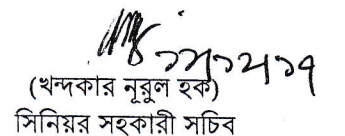 (খন্দকার নূরুল হক)
সিনিয়র সহকারী সচিব